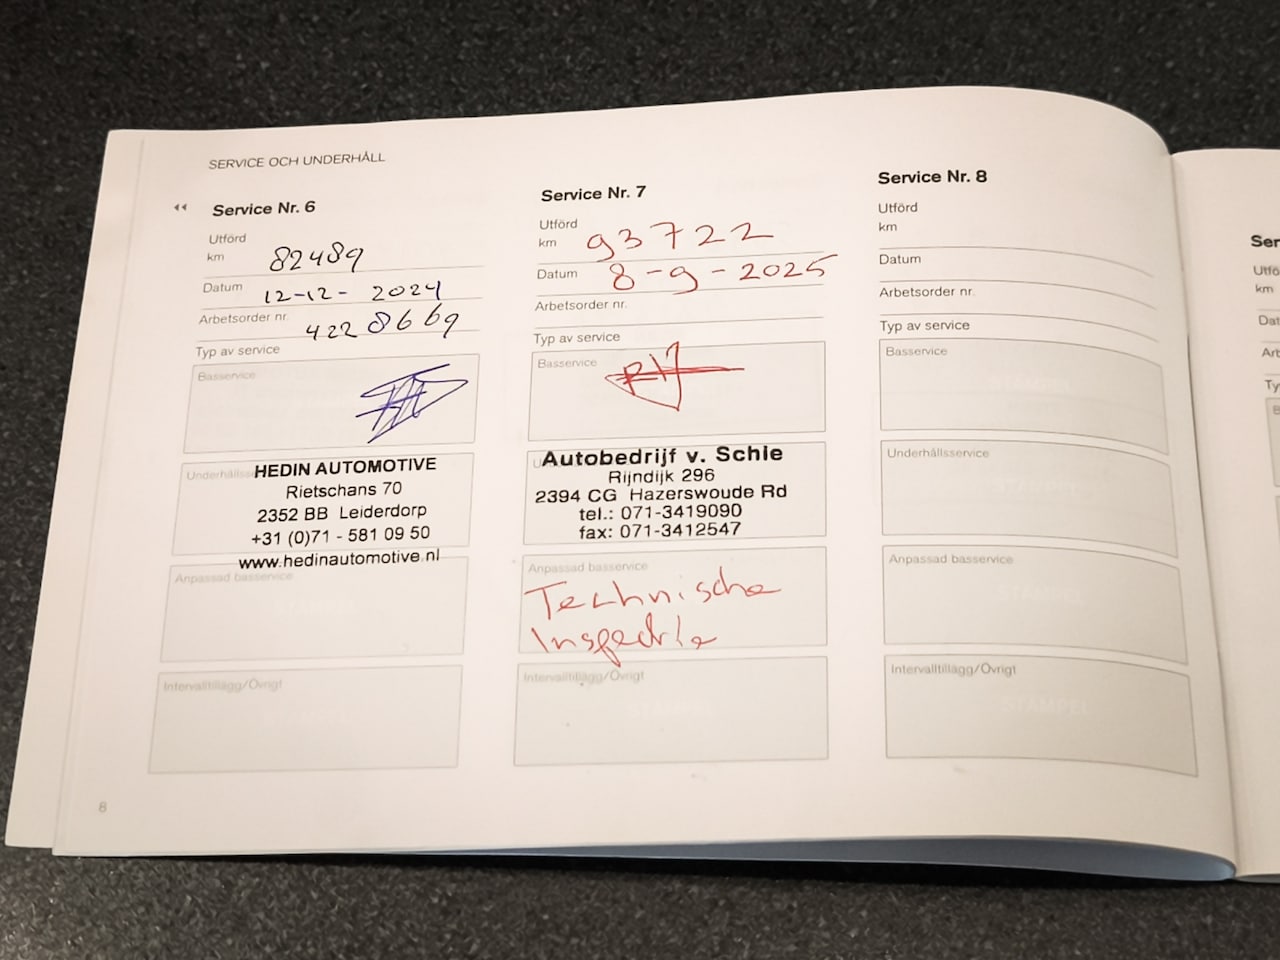 SERVICE OCH UNDERHÅLL
Service Nr. 6
Utförd
km 82489
Datum 12-12-2024
Arbetsorder nr. 4228669
Typ av service
Basservice
HEDIN AUTOMOTIVE
Rietschans 70
2352 BB Leiderdorp
+31 (0)71 - 581 09 50
www.hedinautomotive.nl
Anpassad basservice
Intervalltillägg/Övrigt
Service Nr. 7
Utförd
km 93722
Datum 8-9-2025
Arbetsorder nr.
Typ av service
Basservice
Autobedrijf v. Schie
Rijndijk 296
2394 CG Hazerswoude Rd
tel.: 071-3419090
fax: 071-3412547
Anpassad basservice
Technische
Inspectie
Intervalltillägg/Övrigt
STAMPEL
Service Nr. 8
Utförd
km
Datum
Arbetsorder nr.
Typ av service
Basservice
Underhållsservice
Anpassad basservice
STAMPEL
Intervalltillägg/Övrigt
STAMPEL
8
km